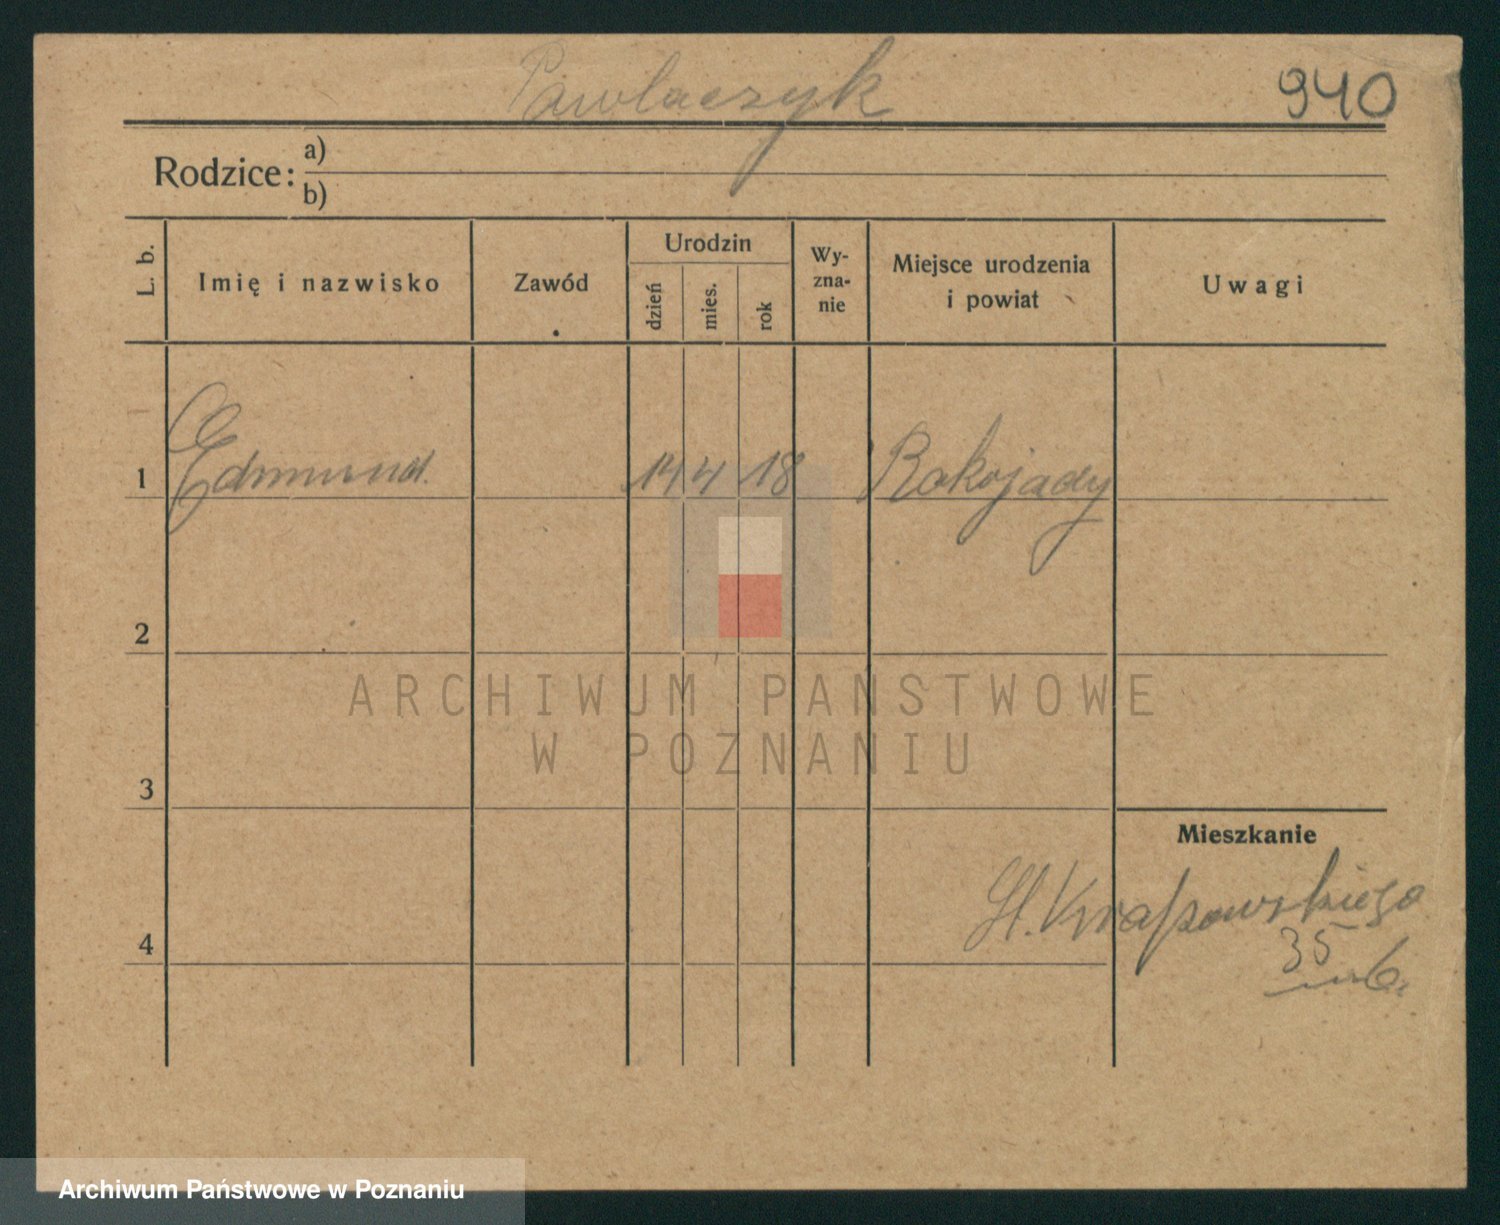 Pawlaczyk
940
Rodzice: a)
b)
L. b.
Imię i nazwisko
Zawód
Urodzin
dzień
mies.
rok
Wy-
zna-
nie
Miejsce urodzenia
i powiat
Uwagi
1 Edmund. 14 4 18 Rakojady
2
ARCHIWUM PAŃSTWOWE
W POZNANIU
3
Mieszkanie
4
35
Archiwum Państwowe w Poznaniu